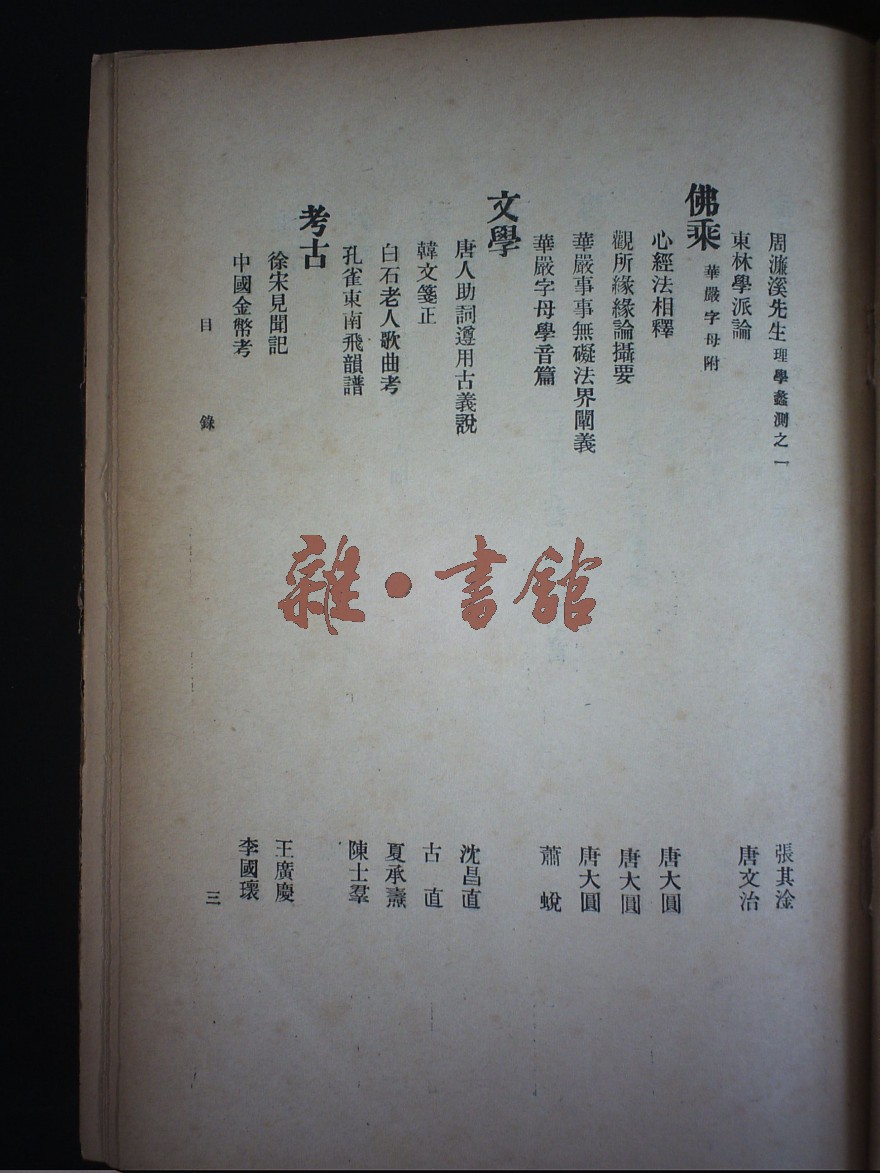 周濂溪先生理學蠡測之一 張其淦
東林學派論 唐文治
佛乘 華嚴字母附
心經法相釋 唐大圓
觀所緣緣論攝要 唐大圓
華嚴事事無礙法界闡義 唐大圓
華嚴字母學音篇 蕭蛻
文學
唐人助詞遵用古義說 沈昌直
韓文箋正 古直
白石老人歌曲考 夏承燾
孔雀東南飛韻譜 陳士羣
考古
徐宋見聞記 王廣慶
中國金幣考 李國瓌
目錄 三
雜·書館